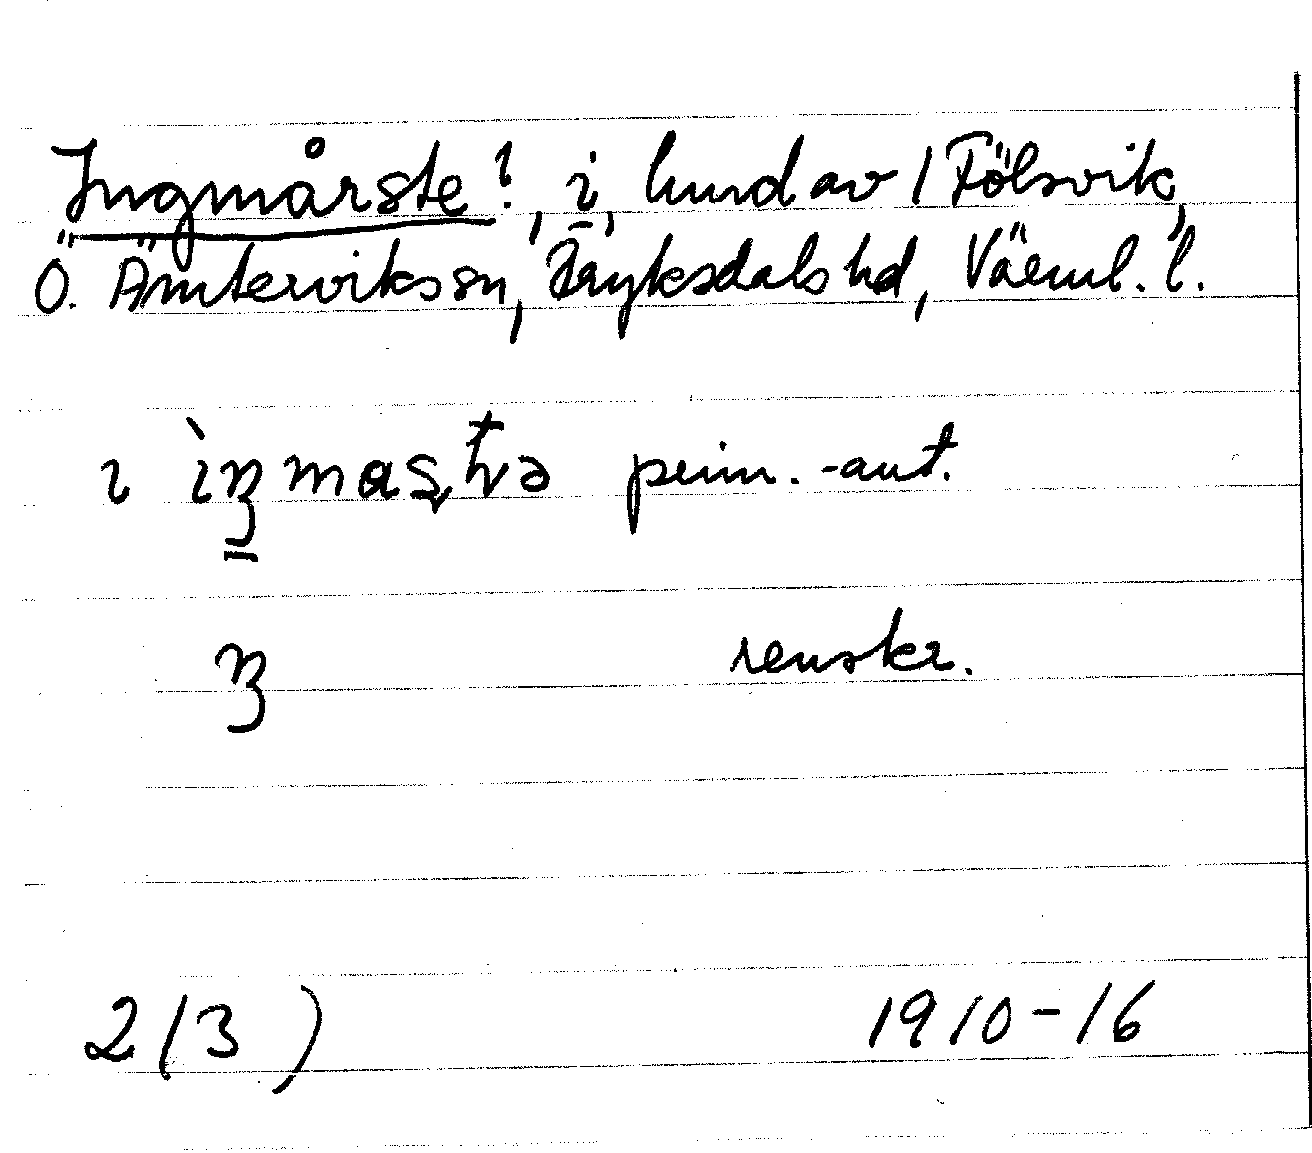 Ingmårste?, i, hund av 1 Fölsvik,
Ö. Ämterviks sn, Fryksdals hd, Värml. l.
ı ìŋmaʂtə prim.-ant.
ŋ renskr.
2(3) 1910-16